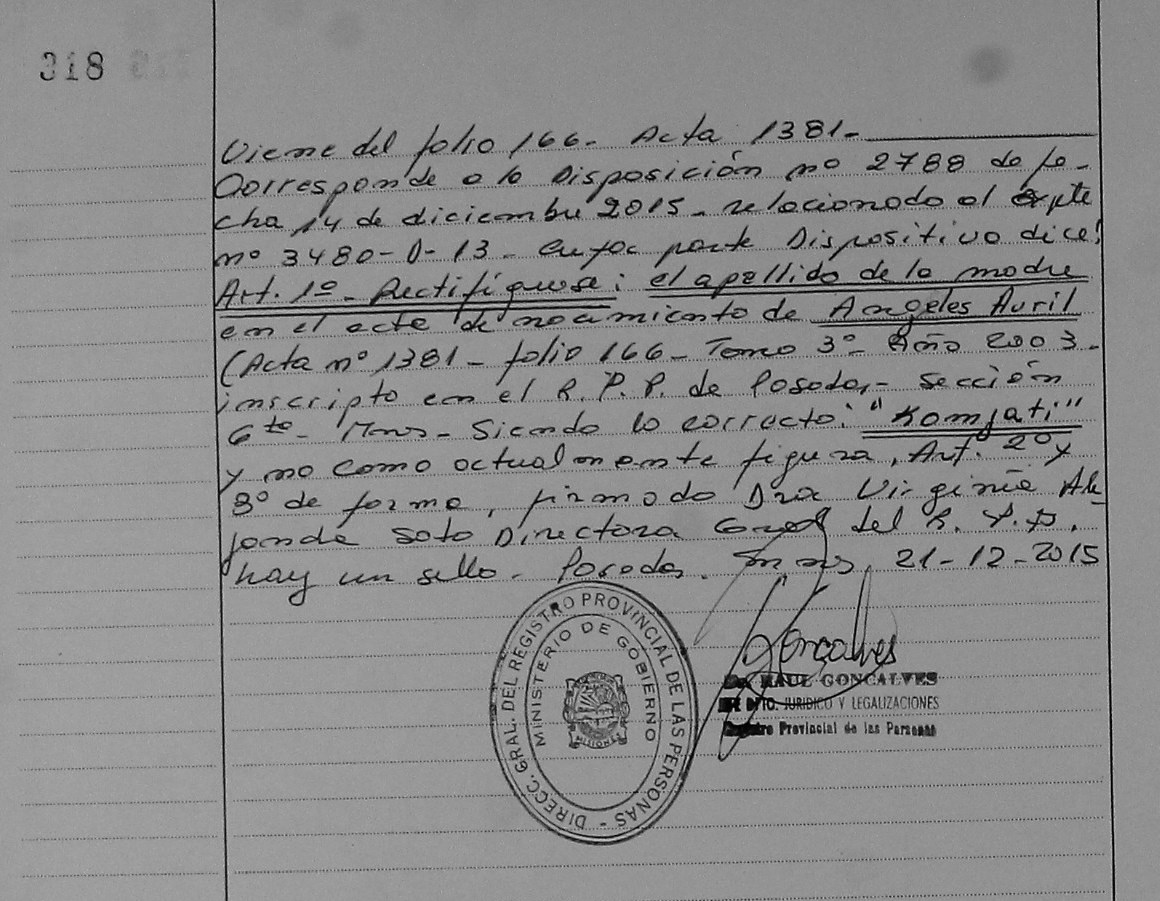 318
Viene del folio 166- Acta 1381-
Corresponde a la Disposición nº 2788 de fe-
cha 14 de diciembre 2015- relacionado al Expte
nº 3480-D-13- cuya parte Dispositiva dice:
Art. 1º- Rectifíquese: el apellido de la madre
en el acta de nacimiento de Angeles Avril
(Acta nº 1381- folio 166- Tomo 3º- Año 2003-
inscripto en el R. P. P. de Posadas- Sección
6ta- Mnes- Siendo lo correcto: "Komjati"
y no como actualmente figura, Art. 2º y
3º de forma, firmado Dra Virginia Ale
jandra Soto Directora Gral del R. P. P.
hay un sello- Posadas. Mnes, 21-12-2015
Goncalves
Dr. RAUL GONCALVES
JEFE DPTO. JURIDICO Y LEGALIZACIONES
Registro Provincial de las Personas
DIRECC. GRAL. DEL REGISTRO PROVINCIAL DE LAS PERSONAS -
MINISTERIO DE GOBIERNO
MISIONES